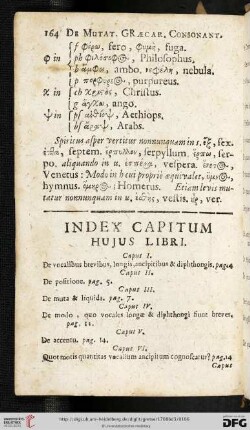 164 DE MUTAT. GRÆCAR. CONSONANT.
f φέρω, fero, φυγὴ, fuga.
φ in ph φιλόσοφος, Philosophus.
b ἄμφω, ambo, νεφέλη, nebula.
p πορφύρεος, purpureus.
χ in ch χριστὸς, Christus.
g ἄγχω, ango.
ψ in ps αἰθίοψ, Aethiops,
bs ἄραψ, Arabs.
Spiritus asper vertitur nonnunquam in s. ἓξ, sex.
ἑπτὰ, septem. ἕρπυλλον, serpyllum ἕρπω, ser-
po. aliquando in u, ἑσπέρα, vespera.
Venetus: Modo in h cui proprie æquivalet, ὕμνος,
hymnus. ὅμηρος: Homerus. Etiam levis mu-
tatur nonnunquam in u, vestis, ver.
INDEX CAPITUM
HUJUS LIBRI.
Caput I.
De vocalibus brevibus, longis, ancipitibus & diphthongis. pag.4
Caput II.
De positione. pag. 5.
Caput III.
De muta & liquida. pag. 7.
Caput IV.
De modo, quo vocales longæ & diphthongi fiunt breves,
pag. 11.
Caput V.
De accentu. pag. 14.
Caput VI.
Quot modis quantitas vocalium ancipitum cognoscatur? pag.14
Caput